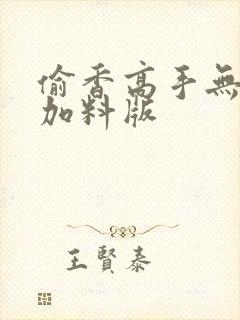 偷香高手無
加料版
王賢泰